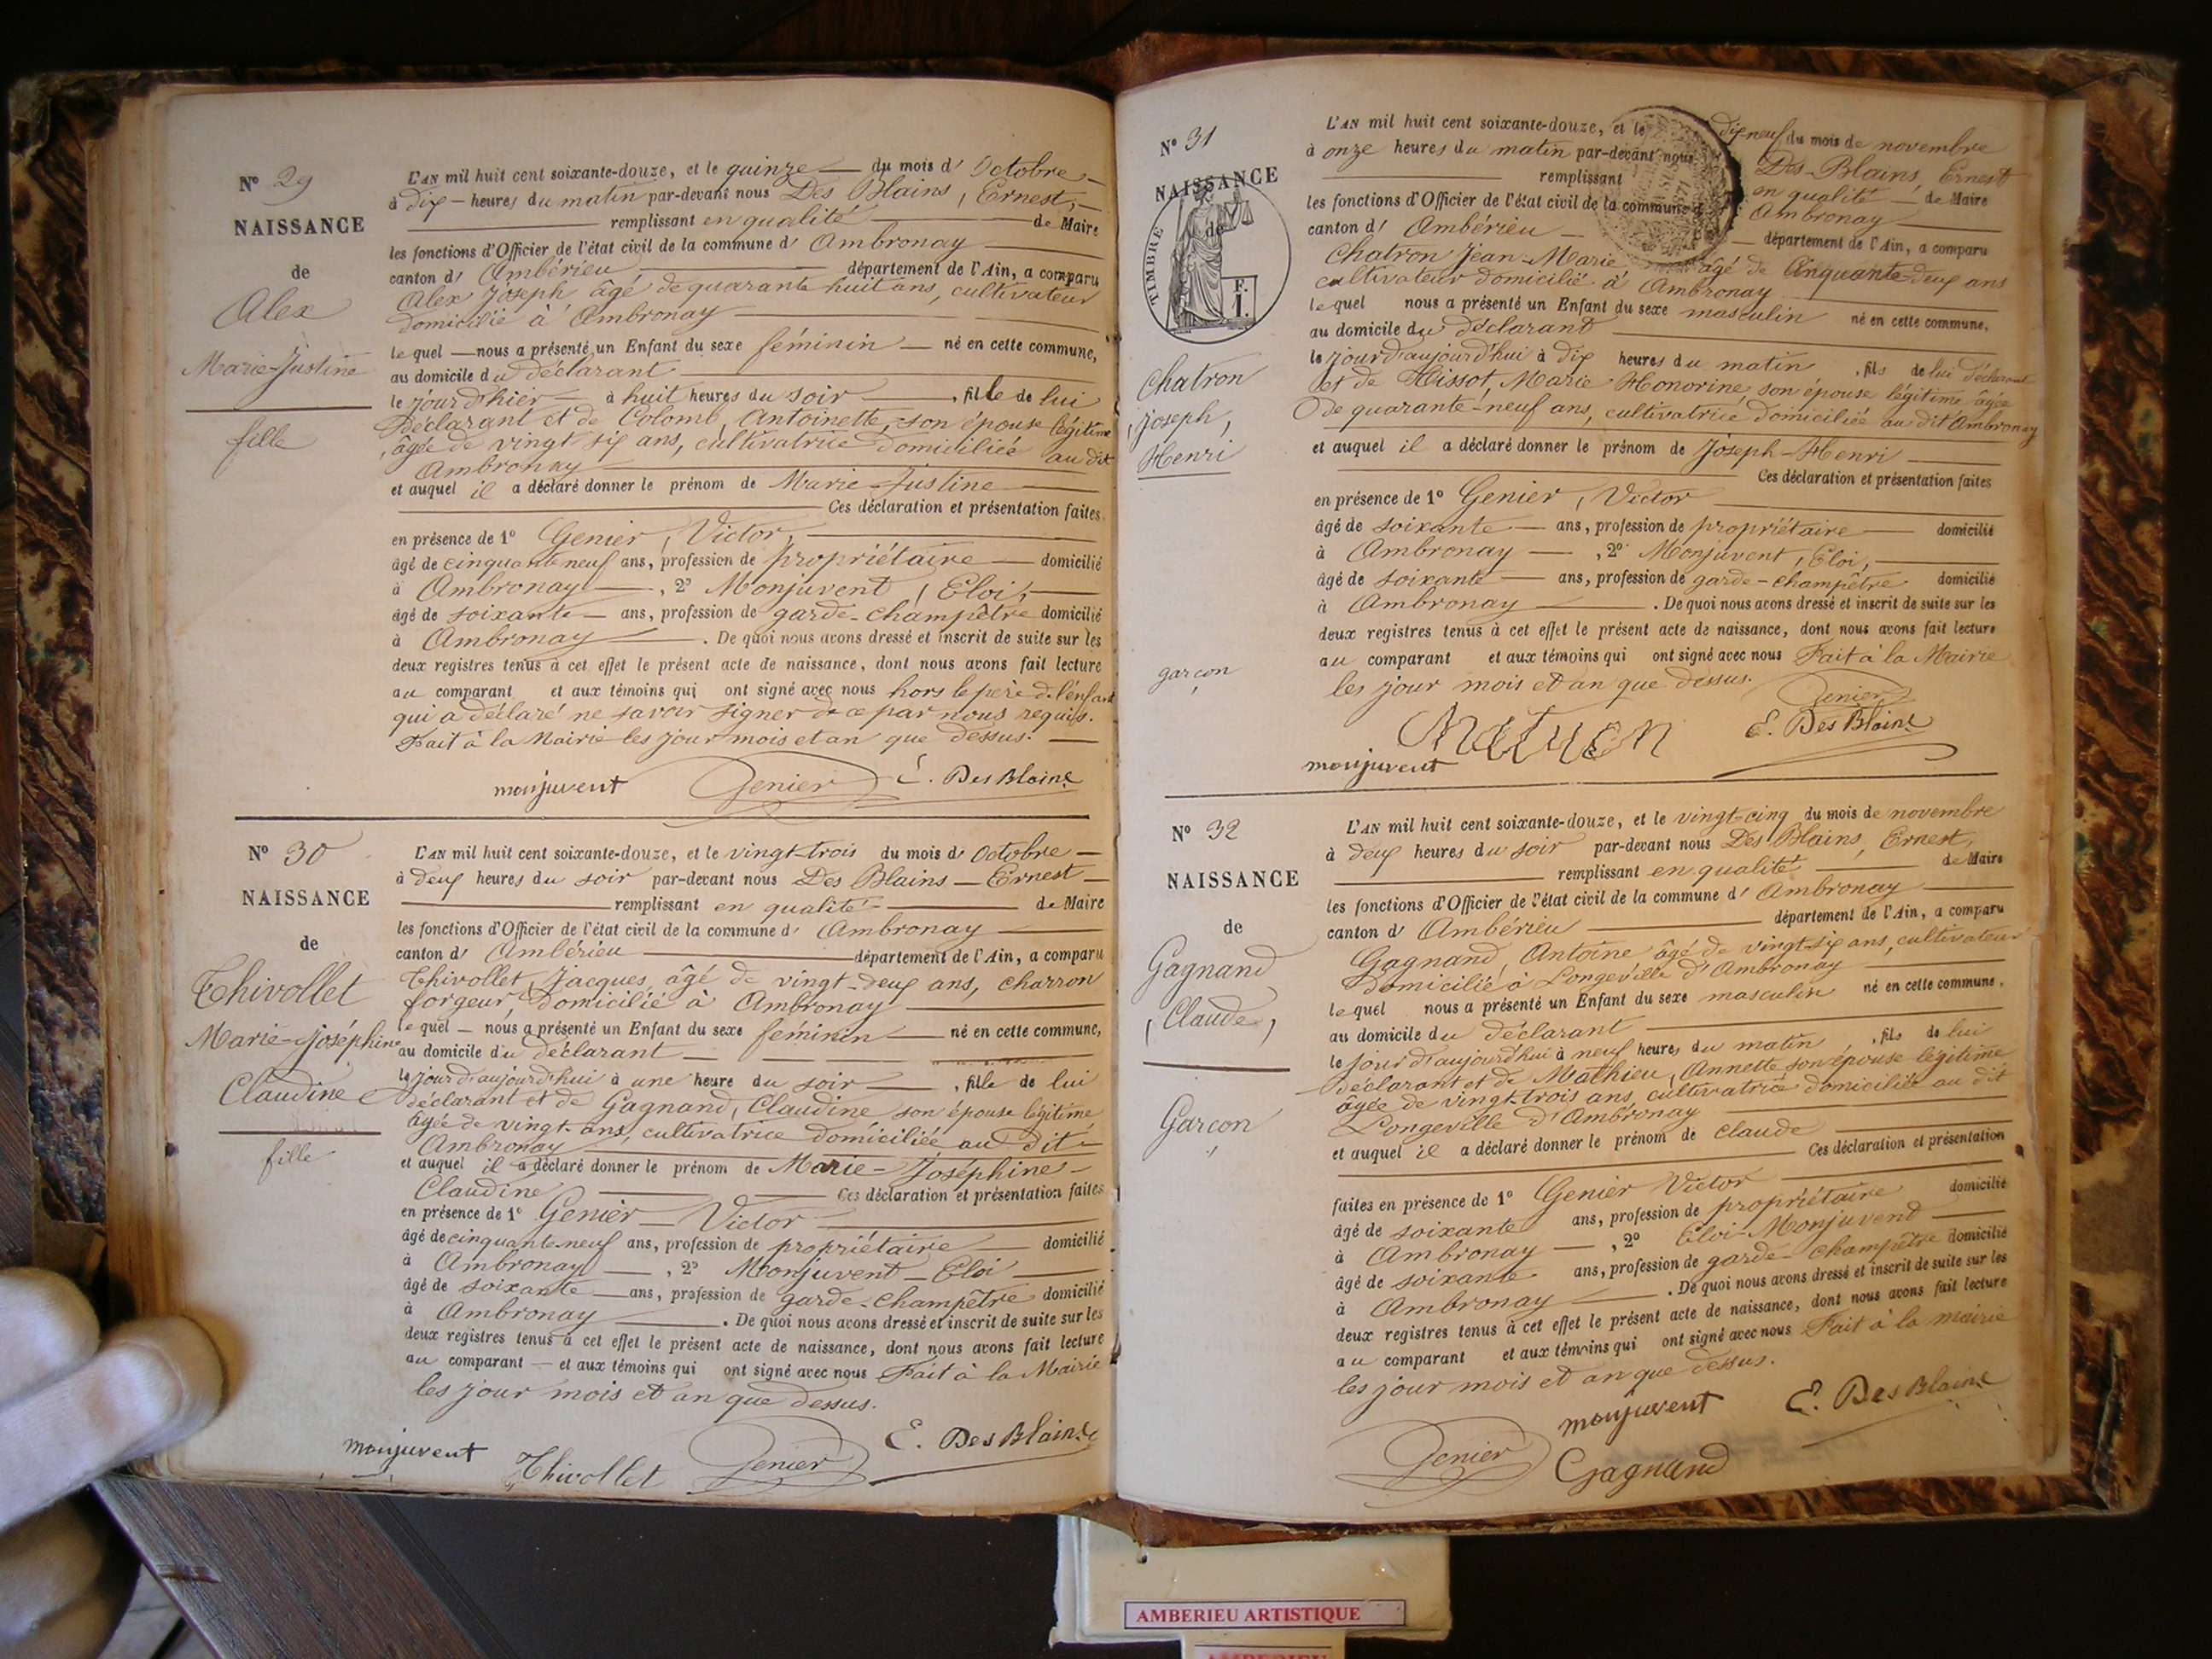 N° 29
NAISSANCE
de
Alex
Marie-Justine
fille
L'AN mil huit cent soixante-douze, et le quinze du mois d' Octobre
à dix heures du matin par-devant nous Des Blains, Ernest,
remplissant en qualité de Maire
les fonctions d'Officier de l'état civil de la commune d' Ambronay
canton d' Ambérieu département de l'Ain, a comparu
Alex Joseph âgé de quarante huit ans, cultivateur
domicilié à Ambronay
lequel nous a présenté un Enfant du sexe féminin né en cette commune,
au domicile du déclarant
le jour d'hier à huit heures du soir, fille de lui
déclarant et de Colomb, Antoinette, son épouse légitime
âgée de vingt six ans, cultivatrice domiciliée au dit
Ambronay
et auquel il a déclaré donner le prénom de Marie-Justine
Ces déclaration et présentation faites
en présence de 1° Genier, Victor,
âgé de cinquante neuf ans, profession de propriétaire domicilié
à Ambronay, 2° Monjuvent, Eloi,
âgé de soixante ans, profession de garde-champêtre domicilié
à Ambronay. De quoi nous avons dressé et inscrit de suite sur les
deux registres tenus à cet effet le présent acte de naissance, dont nous avons fait lecture
au comparant et aux témoins qui ont signé avec nous hors le père de l'enfant
qui a déclaré ne savoir signer de ce par nous requis.
Fait à la Mairie les jour mois et an que dessus.
monjuvent Genier E. Des Blains
N° 30
NAISSANCE
de
Thivollet
Marie-Joséphine
Claudine
fille
L'AN mil huit cent soixante-douze, et le vingt-trois du mois d' Octobre
à deux heures du soir par-devant nous Des Blains Ernest
remplissant en qualité de Maire
les fonctions d'Officier de l'état civil de la commune d' Ambronay
canton d' Ambérieu département de l'Ain, a comparu
Thivollet, Jacques, âgé de vingt-deux ans, charron
forgeur, domicilié à Ambronay
lequel nous a présenté un Enfant du sexe féminin né en cette commune,
au domicile du déclarant
le jour d'aujourd'hui à une heure du soir, fille de lui
déclarant et de Gagnand, Claudine son épouse légitime
âgée de vingt ans, cultivatrice domiciliée au dit
Ambronay
et auquel il a déclaré donner le prénom de Marie-Joséphine-
Claudine Ces déclaration et présentation faites
en présence de 1° Genier Victor
âgé de cinquante-neuf ans, profession de propriétaire domicilié
à Ambronay, 2° Monjuvent Eloi
âgé de soixante ans, profession de garde-champêtre domicilié
à Ambronay. De quoi nous avons dressé et inscrit de suite sur les
deux registres tenus à cet effet le présent acte de naissance, dont nous avons fait lecture
au comparant et aux témoins qui ont signé avec nous Fait à la Mairie
les jour mois et an que dessus.
monjuvent Thivollet Genier E. Des Blains
N° 31
NAISSANCE
de
TIMBRE
F.
1.
Chatron
Joseph,
Henri
garcon
L'AN mil huit cent soixante-douze, et le dix-neuf du mois de novembre
à onze heures du matin par-devant nous Des-Blains, Ernest
remplissant en qualité de Maire
les fonctions d'Officier de l'état civil de la commune d' Ambronay
canton d' Ambérieu département de l'Ain, a comparu
Chatron Jean-Marie âgé de Cinquante-deux ans
cultivateur domicilié à Ambronay
lequel nous a présenté un Enfant du sexe masculin né en cette commune,
au domicile du déclarant
le jour d'aujourd'hui à dix heures du matin, fils de lui déclarant
et de Hissot, Marie Honorine, son épouse légitime âgée
de quarante-neuf ans, cultivatrice domiciliée au dit Ambronay
et auquel il a déclaré donner le prénom de Joseph-Henri
Ces déclaration et présentation faites
en présence de 1° Genier, Victor
âgé de soixante ans, profession de propriétaire domicilié
à Ambronay, 2° Monjuvent, Eloi,
âgé de soixante ans, profession de garde-champêtre domicilié
à Ambronay. De quoi nous avons dressé et inscrit de suite sur les
deux registres tenus à cet effet le présent acte de naissance, dont nous avons fait lecture
au comparant et aux témoins qui ont signé avec nous Fait à la Mairie
les jour mois et an que dessus.
Genier
E. Des Blains
monjuvent
N° 32
NAISSANCE
de
Gagnand
Claude,
Garcon
L'AN mil huit cent soixante-douze, et le vingt-cinq du mois de novembre
à deux heures du soir par-devant nous Des Blains, Ernest,
remplissant en qualité de Maire
les fonctions d'Officier de l'état civil de la commune d' Ambronay
canton d' Ambérieu département de l'Ain, a comparu
Gagnand, Antoine âgé de vingt-six ans, cultivateur
domicilié à Longeville d'Ambronay
lequel nous a présenté un Enfant du sexe masculin né en cette commune,
au domicile du déclarant
le jour d'aujourd'hui à neuf heures du matin, fils de lui
déclarant et de Mathieu, Annette son épouse légitime
âgée de vingt-trois ans, cultivatrice domiciliée au dit
Longeville d'Ambronay
et auquel il a déclaré donner le prénom de Claude
Ces déclaration et présentation
faites en présence de 1° Genier Victor
âgé de soixante ans, profession de propriétaire domicilié
à Ambronay, 2° Eloi Monjuvend
âgé de soixante ans, profession de garde-champêtre domicilié
à Ambronay. De quoi nous avons dressé et inscrit de suite sur les
deux registres tenus à cet effet le présent acte de naissance, dont nous avons fait lecture
au comparant et aux témoins qui ont signé avec nous Fait à la mairie
les jour mois et an que dessus.
monjuvent E. Des Blains
Genier Gagnand
AMBERIEU ARTISTIQUE
AMBERIEU